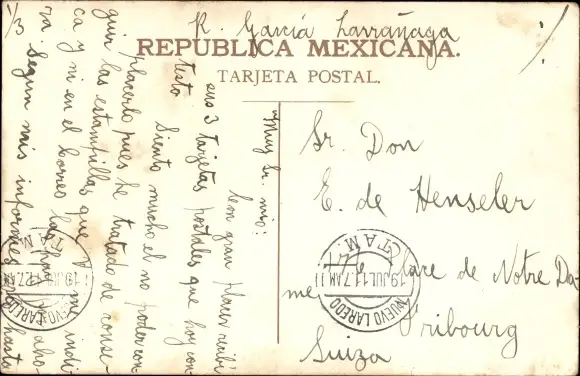 1/3
R. García Larrañaga
REPUBLICA MEXICANA.
TARJETA POSTAL.
Muy Sr. mio:
Con gran placer recibí
sus 3 tarjetas postales que hoy con
testo
Siento mucho el no poder con
placerlo pues he tratado de conse
guir las estampillas que me indi
ca y ni en el Correo las hay aho
ra. Según mis informes hasta
Sr. Don
E. de Henseler
Place de Notre Da
me
Fribourg
Suiza
NUEVO LAREDO
19 JUL 11 7 AM
TAM.
NUEVO LAREDO
19 JUL 11 7 AM
TAM.